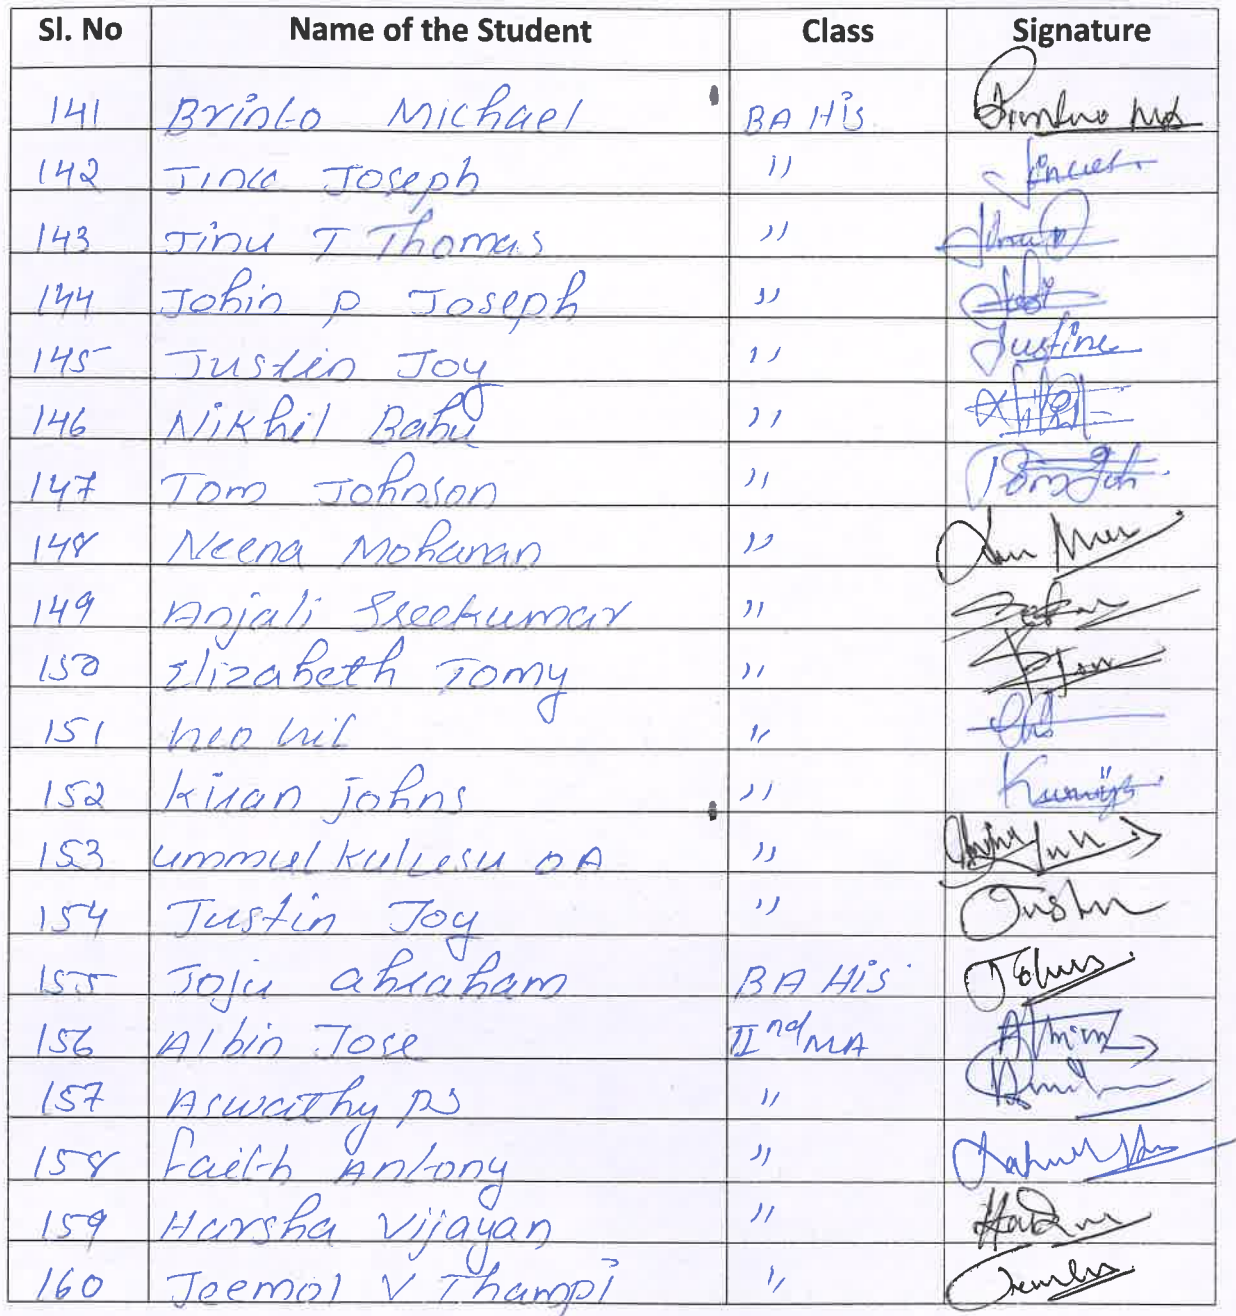 Sl. No Name of the Student Class Signature
141 Brinto Michael BA His
142 Jinu Joseph ״
143 Jinu T Thomas ״
144 Jobin P Joseph ״
145 Justin Joy ״ Justine
146 Nikhil Babu ״
147 Tom Johnson ״
148 Neena Mohanan ״
149 Anjali Sreekumar ״
150 Elizabeth Tomy ״
151 ״
152 Kiran johns ״
153 ummul Kulusu O A ״
154 Justin Joy ״ Justin
155 Joju abraham BA His
156 Albin Jose IInd MA Albin
157 Aswathy PS ״
158 Faith Antony ״
159 Harsha Vijayan ״
160 Jeemol V Thampi ״